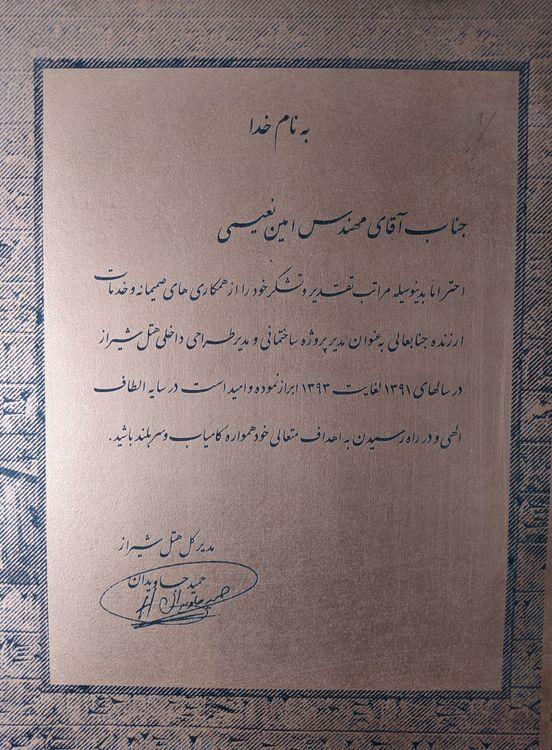 به نام خدا
جناب آقای مهندس امین نعیمی
احتراما بدینوسیله مراتب تقدیر و تشکر خود را از همکاری های صمیمانه و خدمات
ارزنده جنابعالی به عنوان مدیر پروژه ساختمانی و مدیر طراحی داخلی هتل شیراز
در سالهای ۱۳۹۱ لغایت ۱۳۹۳ ابراز نموده و امید است در سایه الطاف
الهی و در راه رسیدن به اهداف متعالی خود همواره کامیاب و سربلند باشید.
مدیر کل هتل شیراز
حمید جاویدان